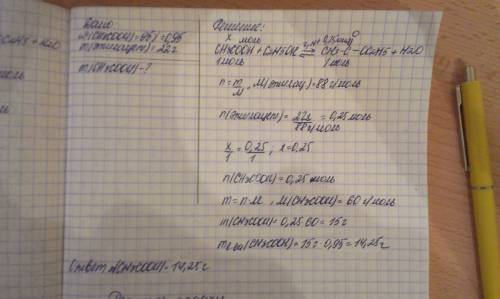 Дано:
ω(CH3COOH)=95%=0,95
m(этилацет)=22г
m(CH3COOH)-?
Решение:
x моль 0,25моль
CH3COOH + C2H5OH ⇄ CH3-C-OC2H5 + H2O
1 моль 1 моль
n=m/M, M(этилац)=88 г/моль
n(этилацет)= 22г/88г/моль = 0,25 моль
x/1 = 0,25/1; x=0,25
n(CH3COOH)=0,25 моль
m=n·M, M(CH3COOH)=60 г/моль
m(CH3COOH)=0,25·60=15г
(CH3COOH)=15г·0,95=14,25г
Ответ: m(CH3COOH)=14,25г